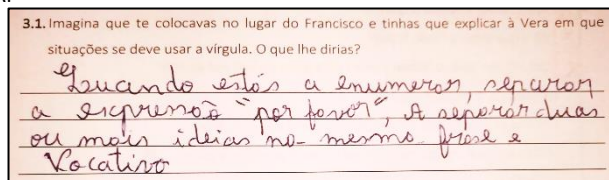 3.1. Imagina que te colocavas no lugar do Francisco e tinhas que explicar à Vera em que
situações se deve usar a vírgula. O que lhe dirias?
Quando estás a enumerar, separar
a expressão "por favor", A separar duas
ou mais ideias na mesma frase e
Vocativo